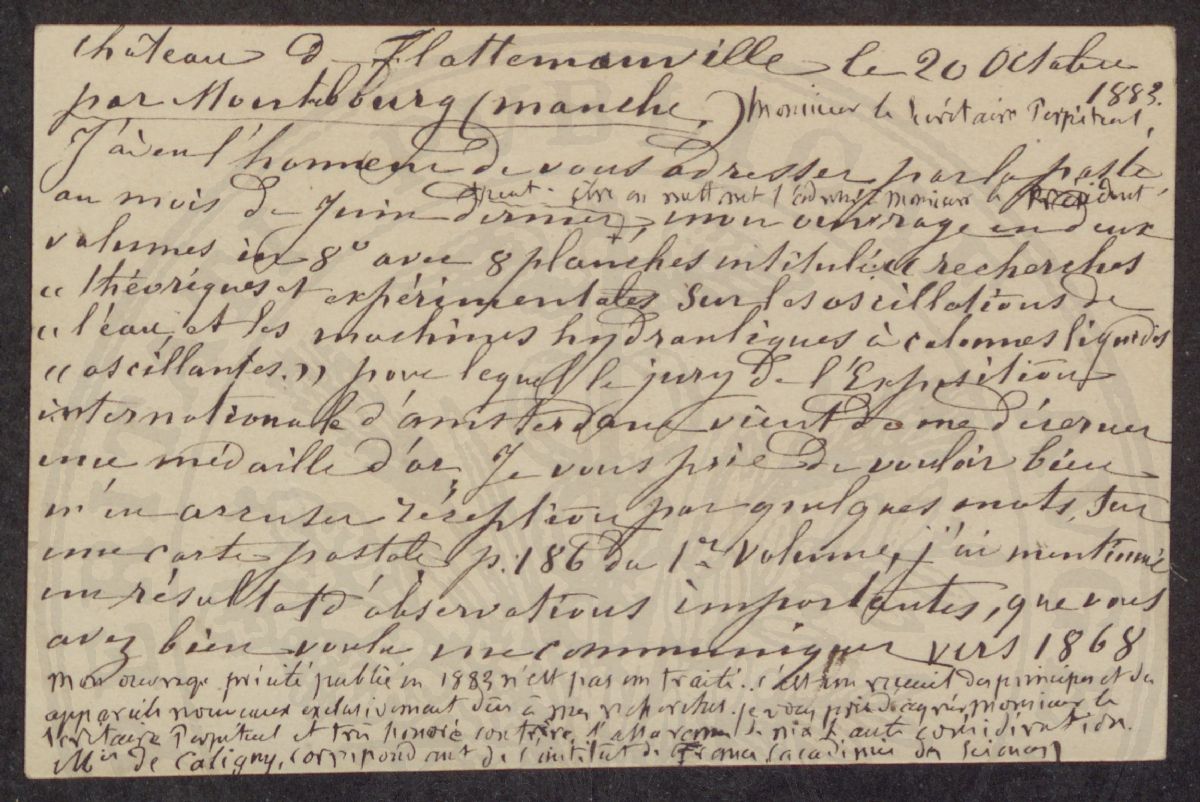 château de Flottemanville le 20 Octobre
1883.
par Montebourg (manche,) Monsieur le Secrétaire Perpétuel,
J'ai eu l'honneur de vous adresser par la poste,
peut-être en mettant l'adresse monsieur le Président
au mois de Juin dernier, mon ouvrage en deux
volumes in 8° avec 8 planches intitulé « recherches
« théoriques et expérimentales sur les oscillations de
« l'eau et les machines hydrauliques à colonnes liquides
« oscillantes. » pour lequel le jury de l'Exposition
internationale d'amsterdam vient de me décerner
une médaille d'or. Je vous prie de vouloir bien
m'en accuser réception par quelques mots sur
une carte postale p. 186 du 1er Volume, j'ai mentionné
un résultat d'observations importantes, que vous
avez bien voulu me communiquer vers 1868
mon ouvrage précité publié en 1883 n'est pas un traité. c'est un recueil des principes et des
appareils nouveaux exclusivement dûs à mes recherches. je vous prie d'agréer monsieur le
Secrétaire Perpétuel et très honoré confrère, l'assurance de ma haute considération.
Mis de Caligny, correspondant de l'institut de France (académie des Sciences)